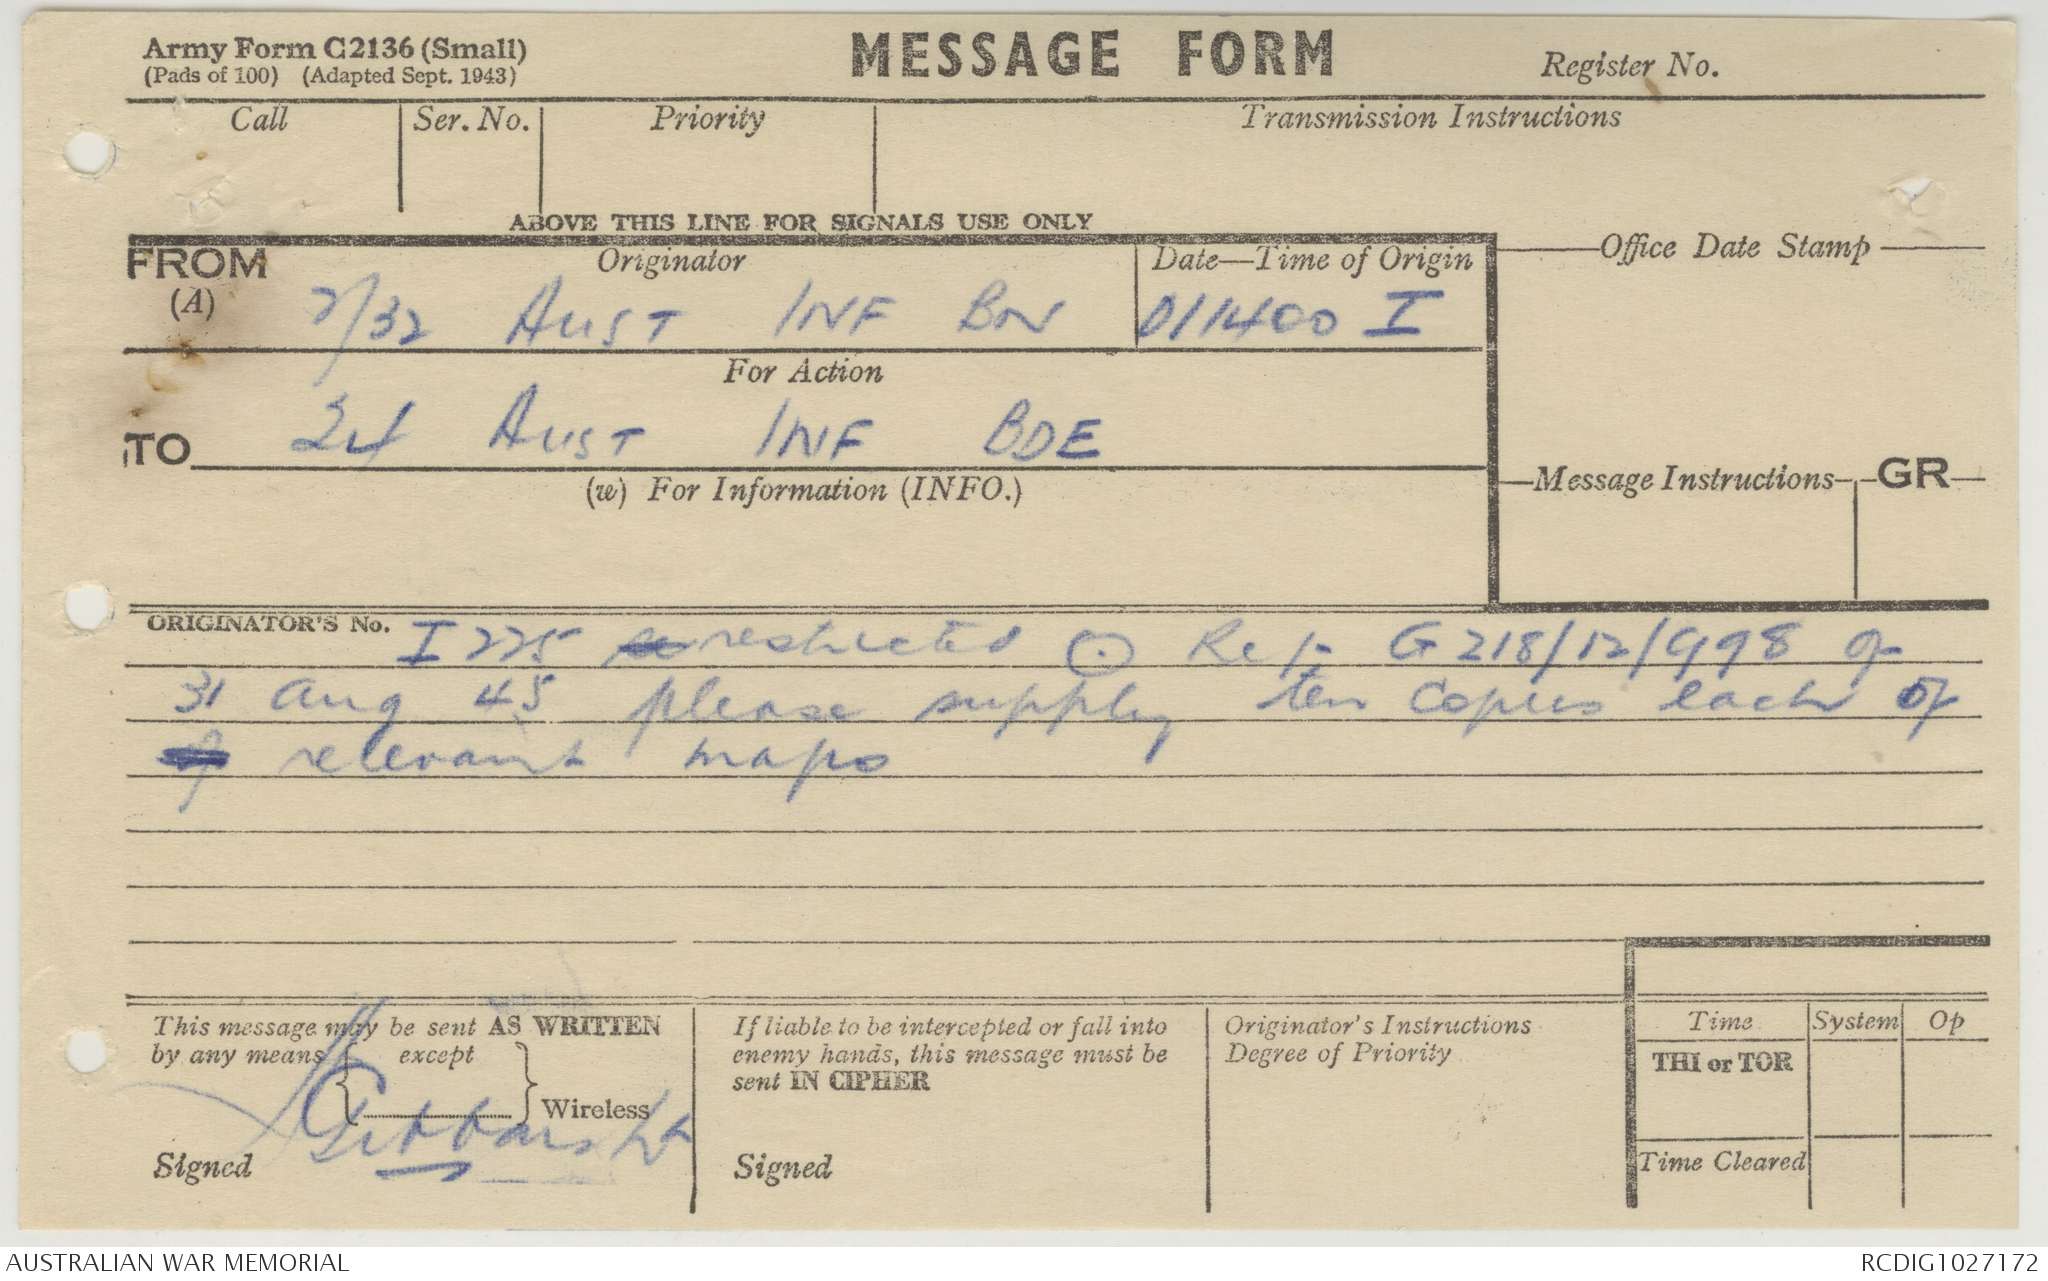 Army Form C2136 (Small)
(Pads of 100) (Adapted Sept. 1943)
MESSAGE FORM
Register No.
Call
Ser. No.
Priority
Transmission Instructions
ABOVE THIS LINE FOR SIGNALS USE ONLY
FROM
(A)
Originator
2/32 AUST INF BN
Date—Time of Origin
011400 I
Office Date Stamp
For Action
TO
24 AUST INF BDE
(w) For Information (INFO.)
Message Instructions
GR
ORIGINATOR'S No.
I 225 restricted ⊙ Ref: G218/12/998 of
31 Aug 45 please supply ten copies each of
relevant maps
This message may be sent AS WRITTEN
by any means except
Wireless
Signed
Lt
If liable to be intercepted or fall into
enemy hands, this message must be
sent IN CIPHER
Signed
Originator's Instructions
Degree of Priority
Time
System
Op
THI or TOR
Time Cleared
AUSTRALIAN WAR MEMORIAL
RCDIG1027172